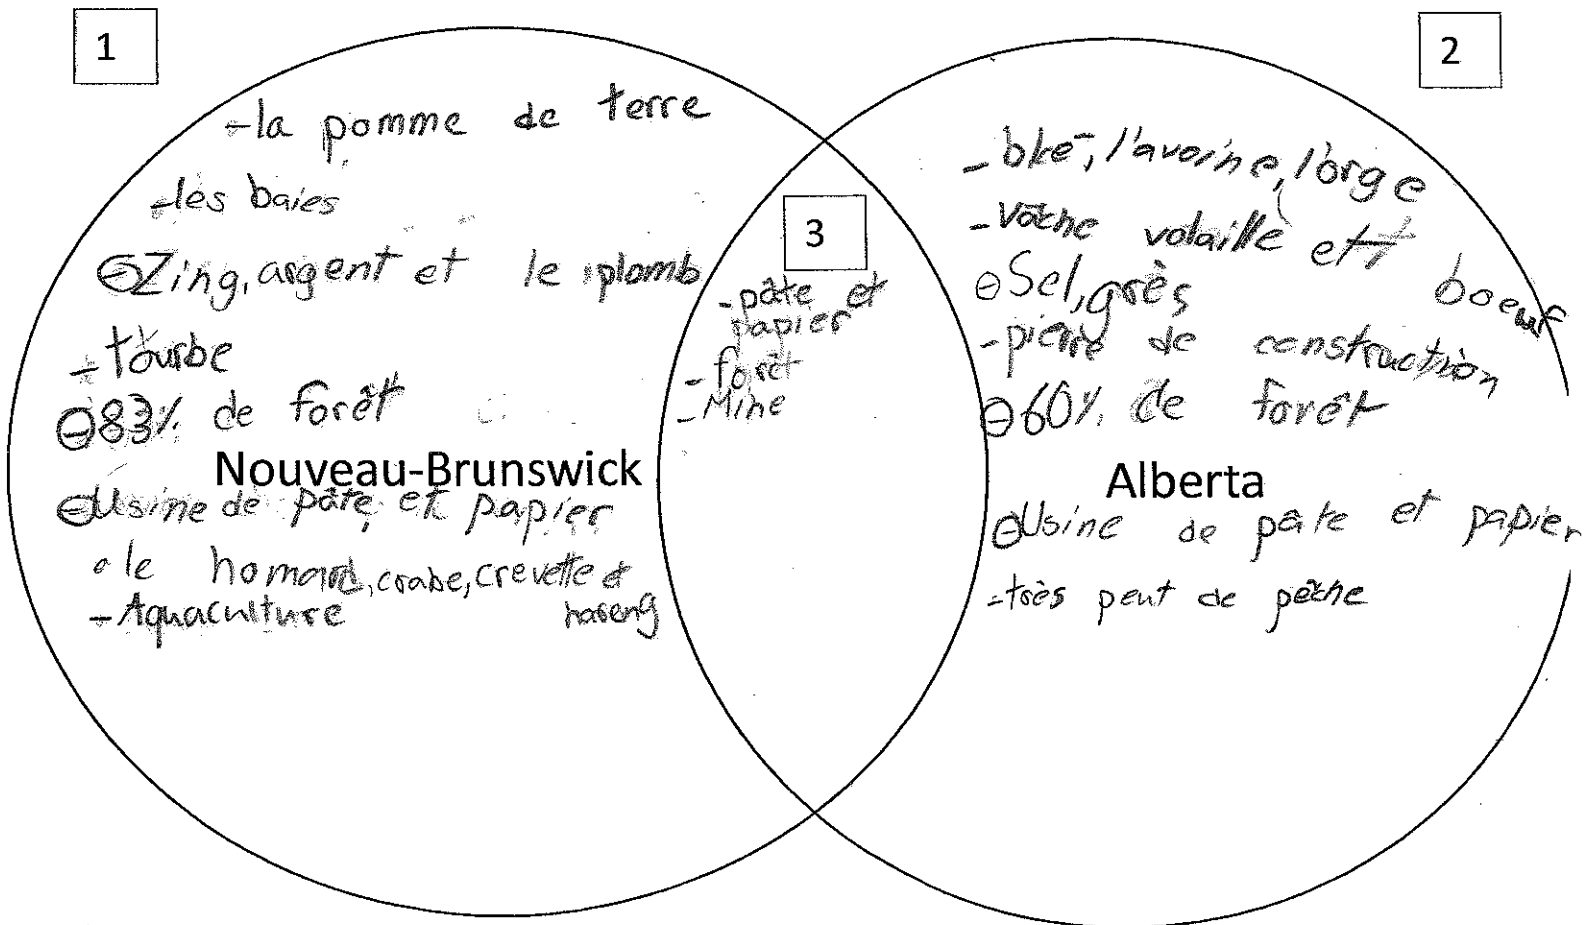 1
-la pomme de terre
-les baies
-Zing, argent et le plomb
-tourbe
-83% de forêt
Nouveau-Brunswick
-Usine de pâte et papier
• le homard, crabe, crevette et hareng
-Aquaculture
3
-pâte et
papier
-forêt
-Mine
2
-blé, l'avoine, l'orge
-vache volaille et boeuf
-Sel, grès
-pierre de construction
-60% de forêt
Alberta
-Usine de pâte et papier
-très peut de pêche